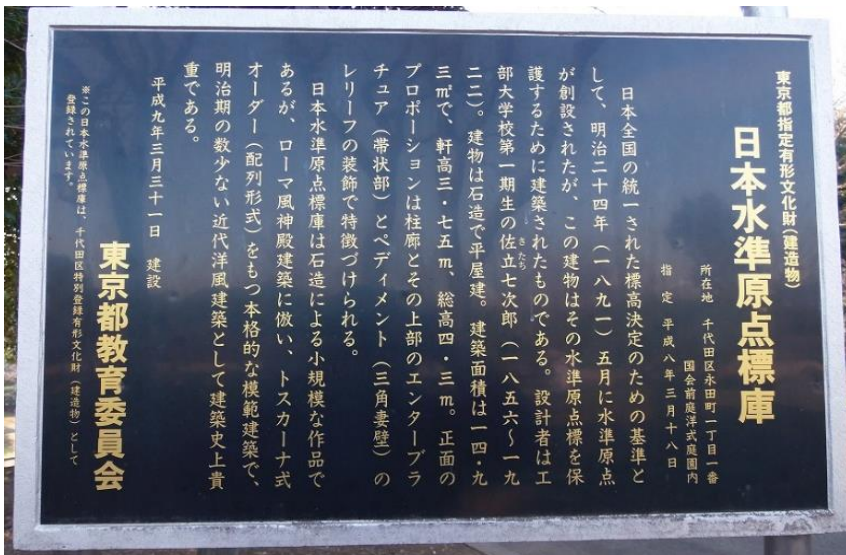 東京都指定有形文化財(建造物)
日本水準原点標庫
所在地 千代田区永田町一丁目一番
国会前庭洋式庭園内
指定 平成八年三月十八日
日本全国の統一された標高決定のための基準と
して、明治二十四年(一八九一)五月に水準原点
が創設されたが、この建物はその水準原点標を保
護するために建築されたものである。設計者は工
部大学校第一期生の佐立七次郎(一八五六〜一九
きたち
二二)。建物は石造で平屋建。建築面積は一四・九
三㎡で、軒高三・七五m、総高四・三m。正面の
プロポーションは柱廊とその上部のエンターブラ
チュア(帯状部)とペディメント(三角妻壁)の
レリーフの装飾で特徴づけられる。
日本水準原点標庫は石造による小規模な作品で
あるが、ローマ風神殿建築に倣い、トスカーナ式
オーダー(配列形式)をもつ本格的な模範建築で、
明治期の数少ない近代洋風建築として建築史上貴
重である。
平成九年三月三十一日 建設
東京都教育委員会
※この日本水準原点標庫は、千代田区特別登録有形文化財(建造物)として
登録されています。